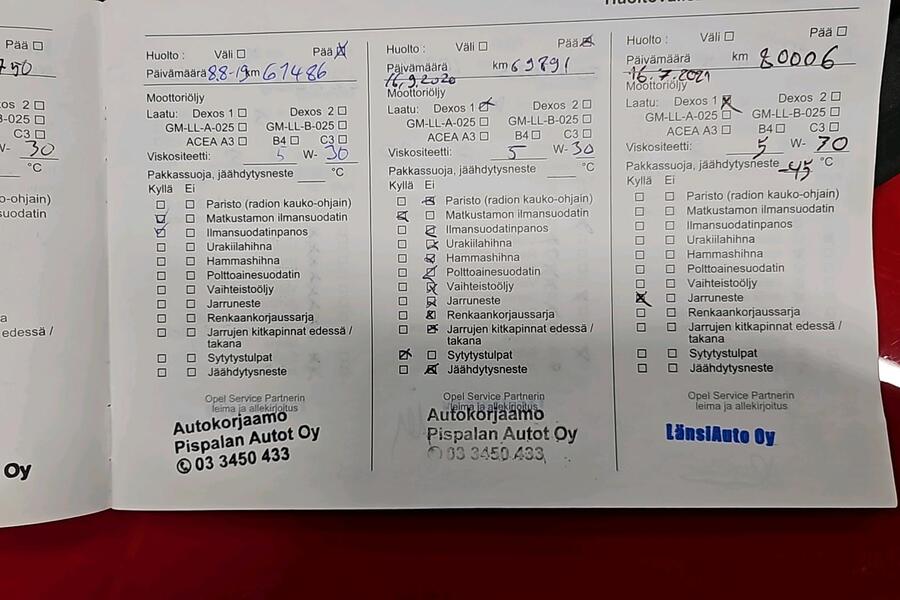 Pää ☐
os 2 ☐
B-025 ☐
C3 ☐
W- 30
°C
o-ohjain)
suodatin
a
edessä /
Oy
Huolto : Väli ☐ Pää ☒
Päivämäärä 8.8-19 km 61486
Moottoriöljy
Laatu: Dexos 1 ☐ Dexos 2 ☐
GM-LL-A-025 ☐ GM-LL-B-025 ☐
ACEA A3 ☐ B4 ☐ C3 ☐
Viskositeetti: 5 W- 30
Pakkassuoja, jäähdytysneste ____ °C
Kyllä Ei
☐ ☐ Paristo (radion kauko-ohjain)
☒ ☐ Matkustamon ilmansuodatin
☒ ☐ Ilmansuodatinpanos
☐ ☐ Urakiilahihna
☐ ☐ Hammashihna
☐ ☐ Polttoainesuodatin
☐ ☐ Vaihteistoöljy
☐ ☐ Jarruneste
☐ ☐ Renkaankorjaussarja
☐ ☐ Jarrujen kitkapinnat edessä /
takana
☐ ☐ Sytytystulpat
☐ ☐ Jäähdytysneste
Opel Service Partnerin
leima ja allekirjoitus
Autokorjaamo
Pispalan Autot Oy
03 3450 433
Huolto : Väli ☐ Pää ☒
Päivämäärä km 69891
16.9.2020
Moottoriöljy
Laatu: Dexos 1 ☒ Dexos 2 ☐
GM-LL-A-025 ☐ GM-LL-B-025 ☐
ACEA A3 ☐ B4 ☐ C3 ☐
Viskositeetti: 5 W- 30
Pakkassuoja, jäähdytysneste ____ °C
Kyllä Ei
☐ ☒ Paristo (radion kauko-ohjain)
☒ ☐ Matkustamon ilmansuodatin
☐ ☒ Ilmansuodatinpanos
☐ ☒ Urakiilahihna
☐ ☒ Hammashihna
☐ ☒ Polttoainesuodatin
☐ ☒ Vaihteistoöljy
☐ ☒ Jarruneste
☐ ☒ Renkaankorjaussarja
☐ ☒ Jarrujen kitkapinnat edessä /
takana
☒ ☐ Sytytystulpat
☐ ☒ Jäähdytysneste
Opel Service Partnerin
leima ja allekirjoitus
Autokorjaamo
Pispalan Autot Oy
03 3450 433
Huolto : Väli ☐ Pää ☐
Päivämäärä km 80006
16.7.2021
Moottoriöljy
Laatu: Dexos 1 ☒ Dexos 2 ☐
GM-LL-A-025 ☐ GM-LL-B-025 ☐
ACEA A3 ☐ B4 ☐ C3 ☐
Viskositeetti: 5 W- 30
Pakkassuoja, jäähdytysneste -45 °C
Kyllä Ei
☐ ☐ Paristo (radion kauko-ohjain)
☐ ☐ Matkustamon ilmansuodatin
☐ ☐ Ilmansuodatinpanos
☐ ☐ Urakiilahihna
☐ ☐ Hammashihna
☐ ☐ Polttoainesuodatin
☐ ☐ Vaihteistoöljy
☒ ☐ Jarruneste
☐ ☐ Renkaankorjaussarja
☐ ☐ Jarrujen kitkapinnat edessä /
takana
☐ ☐ Sytytystulpat
☐ ☐ Jäähdytysneste
Opel Service Partnerin
leima ja allekirjoitus
LänsiAuto Oy